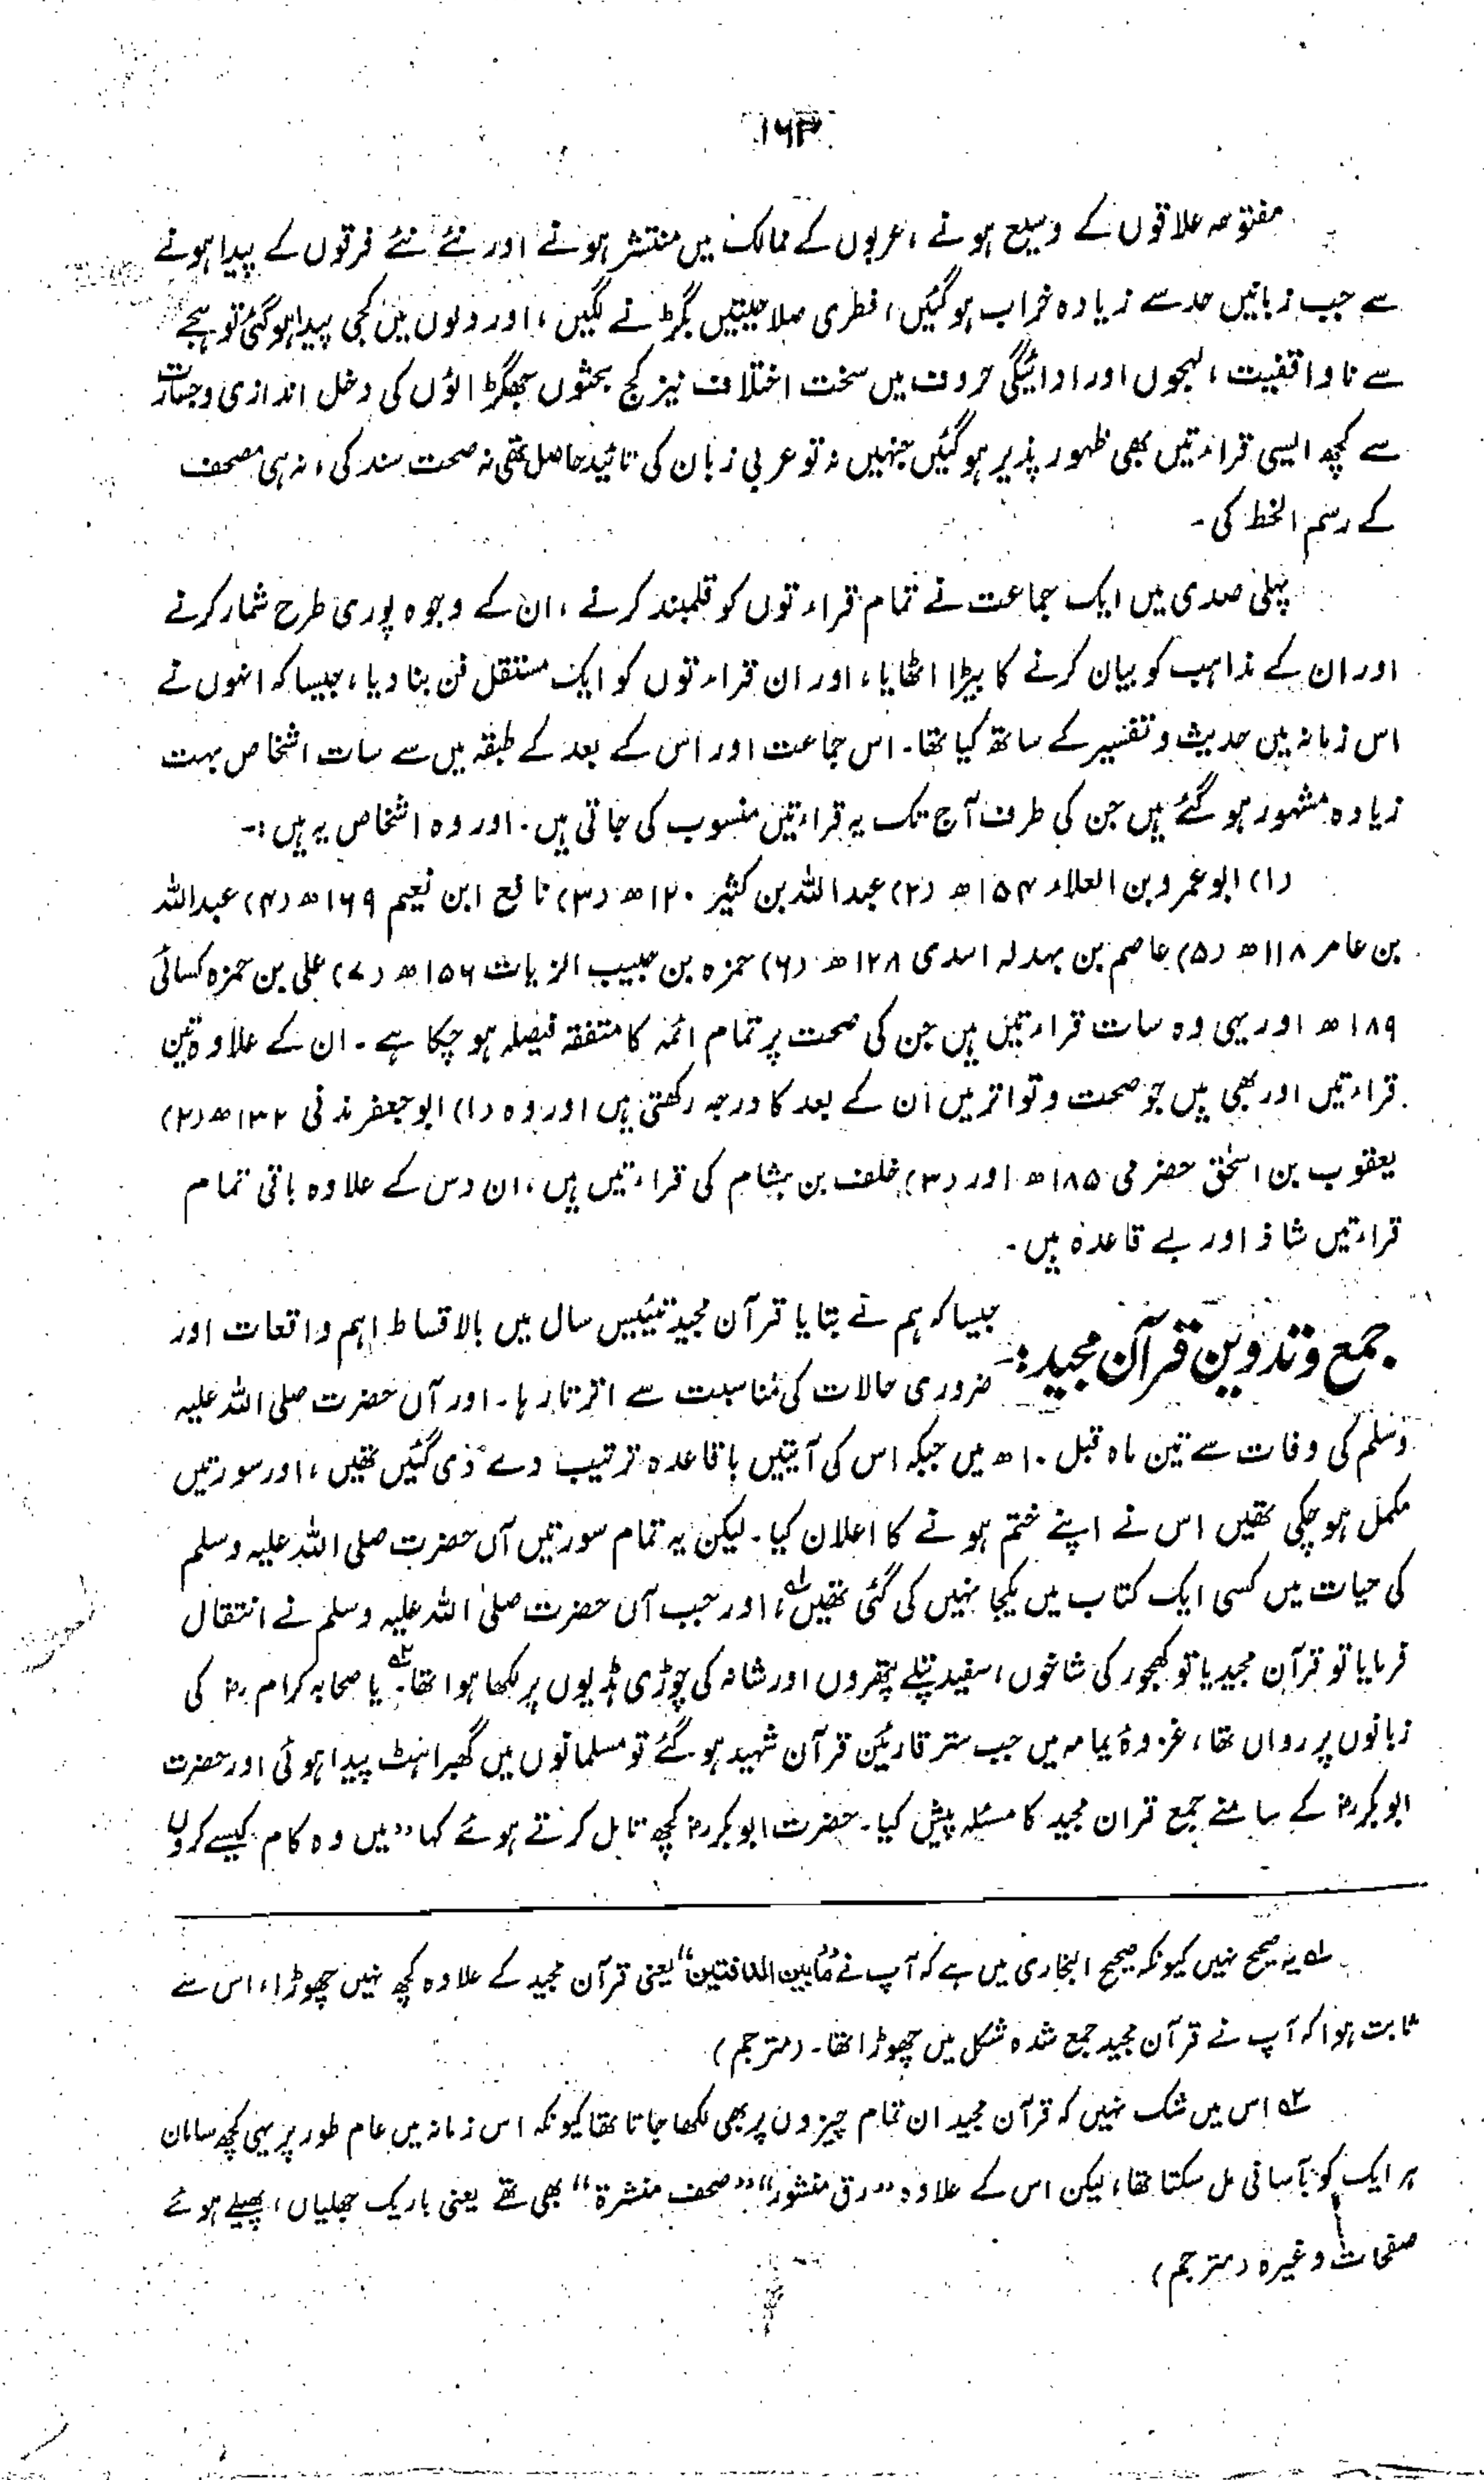 ۱۶۳
مفتوحہ علاقوں کے وسیع ہونے ، عربوں کے ممالک میں منتشر ہونے اور نئے نئے فرقوں کے پیدا ہونے
سے جب زبانیں حد سے زیادہ خراب ہو گئیں ، فطری صلاحیتیں بگڑنے لگیں ، اور دلوں میں کجی پیدا ہو گئی تو ہجے
سے ناواقفیت ، لہجوں اور ادائیگی حروف میں سخت اختلاف نیز کج بحثوں جھگڑالوؤں کی دخل اندازی وجسارت
سے کچھ ایسی قراءتیں بھی ظہور پذیر ہو گئیں جنہیں نہ تو عربی زبان کی تائید حاصل تھی نہ صحت سند کی ، نہ ہی مصحف
کے رسم الخط کی ۔
پہلی صدی میں ایک جماعت نے تمام قراءتوں کو قلمبند کرنے ، ان کے وجوہ پوری طرح شمار کرنے
اور ان کے مذاہب کو بیان کرنے کا بیڑا اٹھایا ، اور ان قراءتوں کو ایک مستقل فن بنا دیا ، جیسا کہ انہوں نے
اس زمانہ میں حدیث و تفسیر کے ساتھ کیا تھا ۔ اس جماعت اور اس کے بعد کے طبقہ میں سے سات اشخاص بہت
زیادہ مشہور ہو گئے ہیں جن کی طرف آج تک یہ قراءتیں منسوب کی جاتی ہیں ۔ اور وہ اشخاص یہ ہیں :۔
(۱) ابو عمرو بن العلاء ۱۵۴ھ (۲) عبداللہ بن کثیر ۱۲۰ھ (۳) نافع ابن نعیم ۱۶۹ھ (۴) عبداللہ
بن عامر ۱۱۸ھ (۵) عاصم بن بہدلہ اسدی ۱۲۸ھ (۶) حمزہ بن حبیب الزیات ۱۵۶ھ (۷) علی بن حمزہ کسائی
۱۸۹ھ اور یہی وہ سات قراءتیں ہیں جن کی صحت پر تمام ائمہ کا متفقہ فیصلہ ہو چکا ہے ۔ ان کے علاوہ تین
قراءتیں اور بھی ہیں جو صحت و تواتر میں ان کے بعد کا درجہ رکھتی ہیں اور وہ (۱) ابو جعفر مدنی ۱۳۲ھ (۲)
یعقوب بن اسحٰق حضرمی ۱۸۵ھ اور (۳) خلف بن ہشام کی قراءتیں ہیں ، ان دس کے علاوہ باقی تمام
قراءتیں شاذ اور بے قاعدہ ہیں ۔
جمع و تدوین قرآن مجید :۔ جیسا کہ ہم نے بتایا قرآن مجید تیئیس سال میں بالاقساط اہم واقعات اور
ضروری حالات کی مناسبت سے اترتا رہا ۔ اور آں حضرت صلی اللہ علیہ
وسلم کی وفات سے تین ماہ قبل ۱۰ھ میں جبکہ اس کی آیتیں باقاعدہ ترتیب دے دی گئیں تھیں ، اور سورتیں
مکمل ہو چکی تھیں اس نے اپنے ختم ہونے کا اعلان کیا ۔ لیکن یہ تمام سورتیں آں حضرت صلی اللہ علیہ وسلم
کی حیات میں کسی ایک کتاب میں یکجا نہیں کی گئی تھیں ۱؎ ، اور جب آں حضرت صلی اللہ علیہ وسلم نے انتقال
فرمایا تو قرآن مجید یا تو کھجور کی شاخوں ، سفید پتلے پتھروں اور شانہ کی چوڑی ہڈیوں پر لکھا ہوا تھا ۲؎ ۔ یا صحابہ کرام رض کی
زبانوں پر رواں تھا ، غزوۂ یمامہ میں جب ستر قارئین قرآن شہید ہو گئے تو مسلمانوں میں گھبراہٹ پیدا ہوئی اور حضرت
ابوبکر رض کے سامنے جمع قران مجید کا مسئلہ پیش کیا ۔ حضرت ابوبکر رض کچھ تامل کرتے ہوئے کہا ”میں وہ کام کیسے کروں
۱؎ یہ صحیح نہیں کیونکہ صحیح البخاری میں ہے کہ آپ نے ”مابین الدفتین“ یعنی قرآن مجید کے علاوہ کچھ نہیں چھوڑا ، اس سے
ثابت ہوا کہ آپ نے قرآن مجید جمع شدہ شکل میں چھوڑا تھا ۔ (مترجم)
۲؎ اس میں شک نہیں کہ قرآن مجید ان تمام چیزون پر بھی لکھا جاتا تھا کیونکہ اس زمانہ میں عام طور پر یہی کچھ سامان
ہر ایک کو بآسانی مل سکتا تھا ، لیکن اس کے علاوہ ”رق منشور“ ”صحف منشرة“ بھی تھے یعنی باریک جھلیاں ، پھیلے ہوئے
صفحات وغیرہ (مترجم)